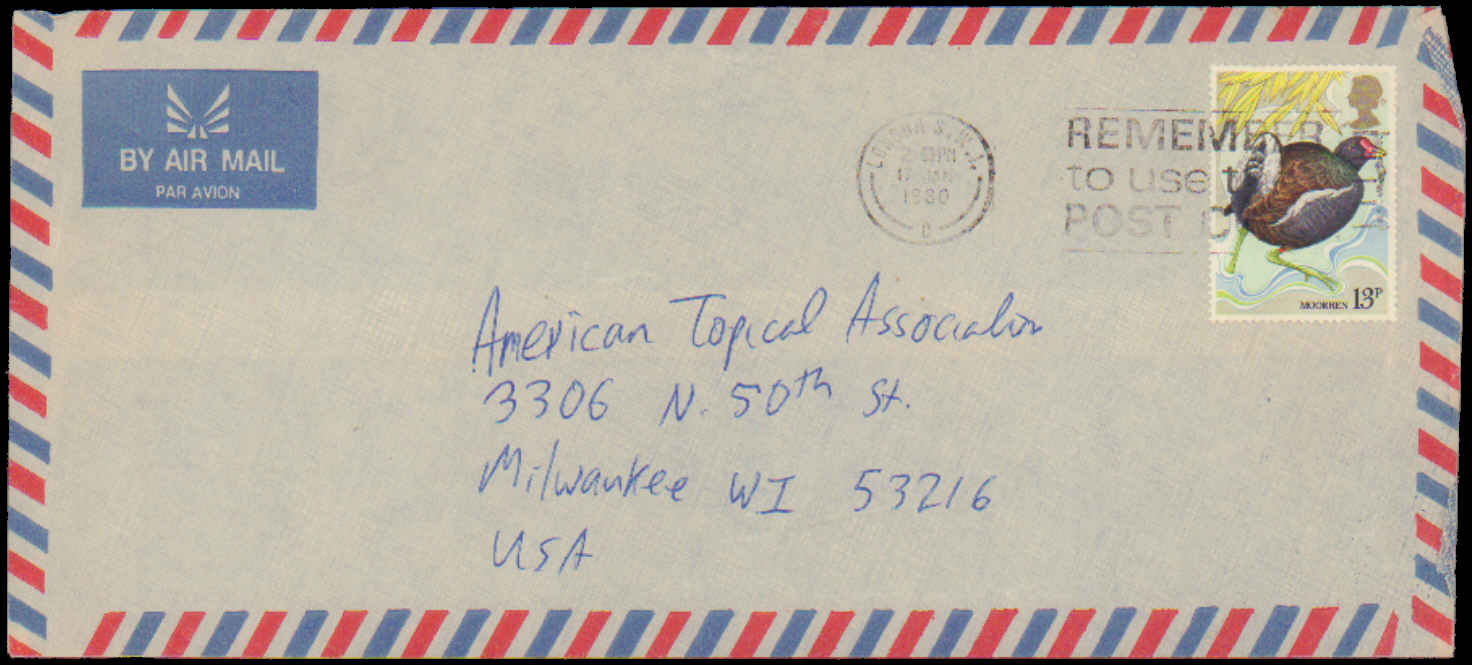 BY AIR MAIL
PAR AVION
LONDON S.W.1.
17 JAN
1980
REMEMBER
to use t
POST C
MOORHEN 13P
American Topical Association
3306 N. 50th St.
Milwaukee WI 53216
USA